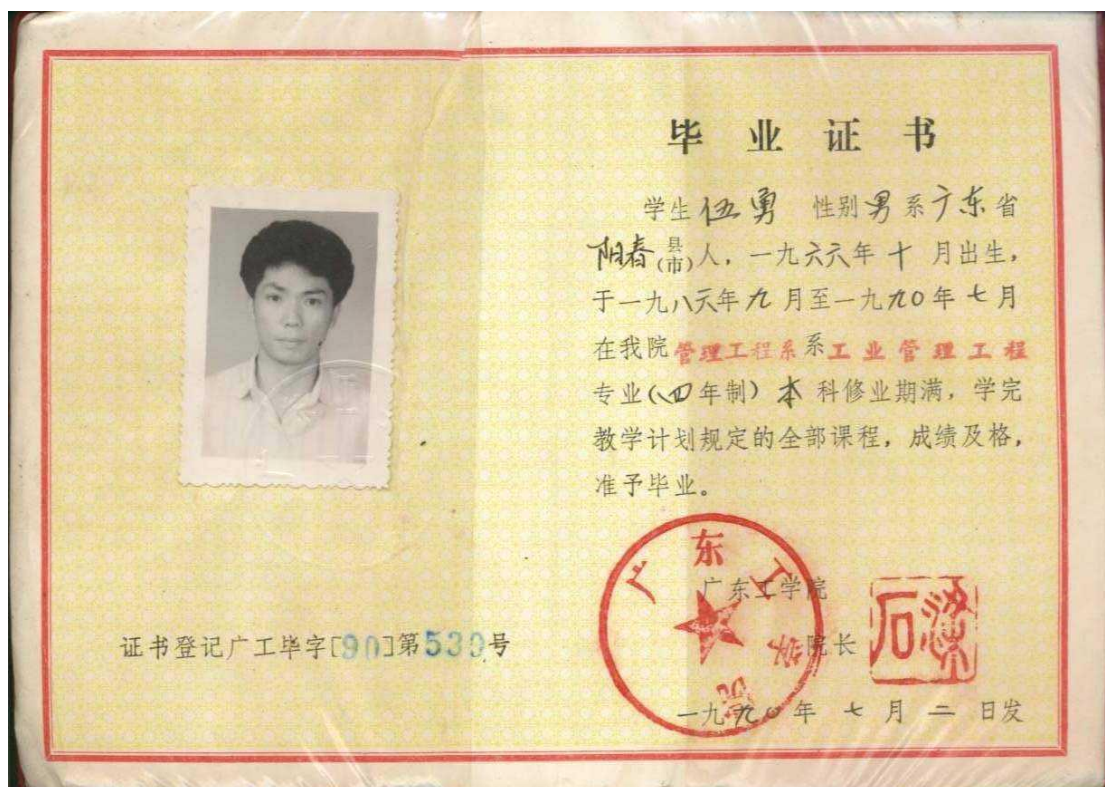 毕业证书
学生伍勇 性别男系广东省
阳春县(市)人，一九六六年十月出生，
于一九八六年九月至一九九0年七月
在我院管理工程系系工业管理工程
专业(四年制)本科修业期满，学完
教学计划规定的全部课程，成绩及格，
准予毕业。
广东工学院
广东工学院
院长
一九九〇年七月二日发
证书登记广工毕字[90]第530号